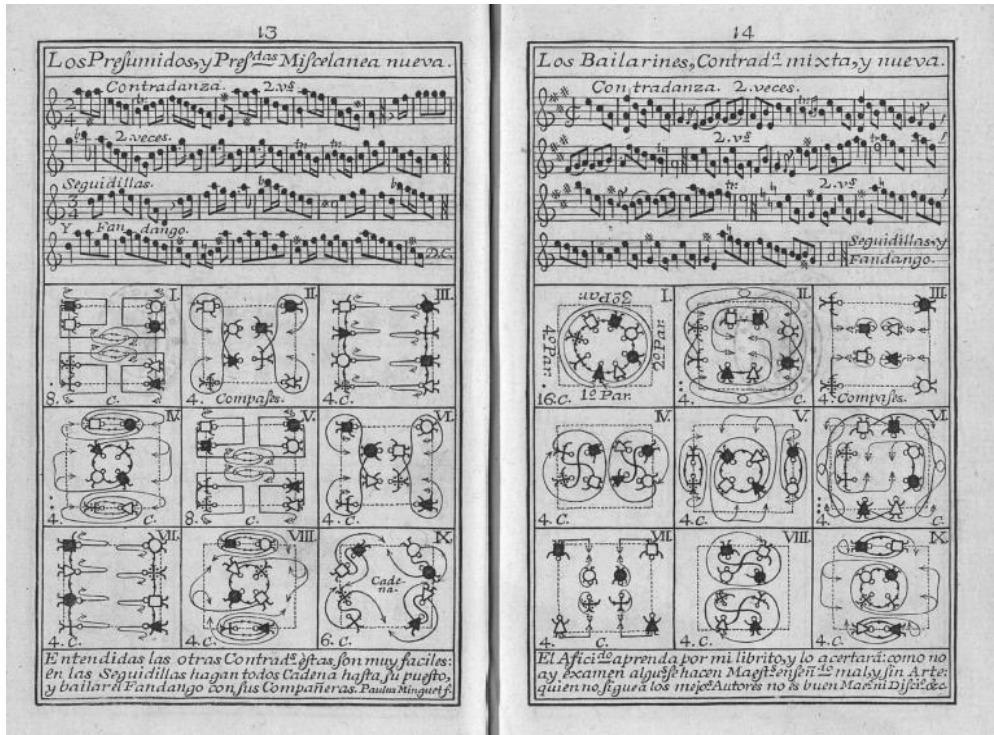 13
Los Preſumidos, y Preſdas Miſcelanea nueva.
Contradanza. 2. vs
2. veces.
Seguidillas.
Y Fandango.
D.C.
I. II. III.
8. C. 4. Compaſes. 4. C.
IV. V. VI.
4. C. 8. C. 4. C.
VII. VIII. IX.
Cadena.
4. C. 4. C. 6. C.
Entendidas las otras Contrads. eſtas ſon muy faciles:
en las Seguidillas hagan todos Cadena haſta ſu pueſto,
y bailar el Fandango con sus Compañeras. Paulus Minguet f.
14
Los Bailarines, Contrada. mixta, y nueva.
Contradanza. 2. veces.
2. vs
2. vs
Seguidillas y
Fandango.
I. II. III.
3o. Par.
4o. Par.
2o. Par.
1o. Par.
16. C. 4. C. 4. Compaſes.
IV. V. VI.
4. C. 4. C. 4. C.
VII. VIII. IX.
4. C. 4. C. 4. C.
El Aficido. aprenda por mi librito, y lo acertará: como no
ay examen ſe hacen mal, y ſin Arte:
quien no ſigue a los mejos. Autores no es buen